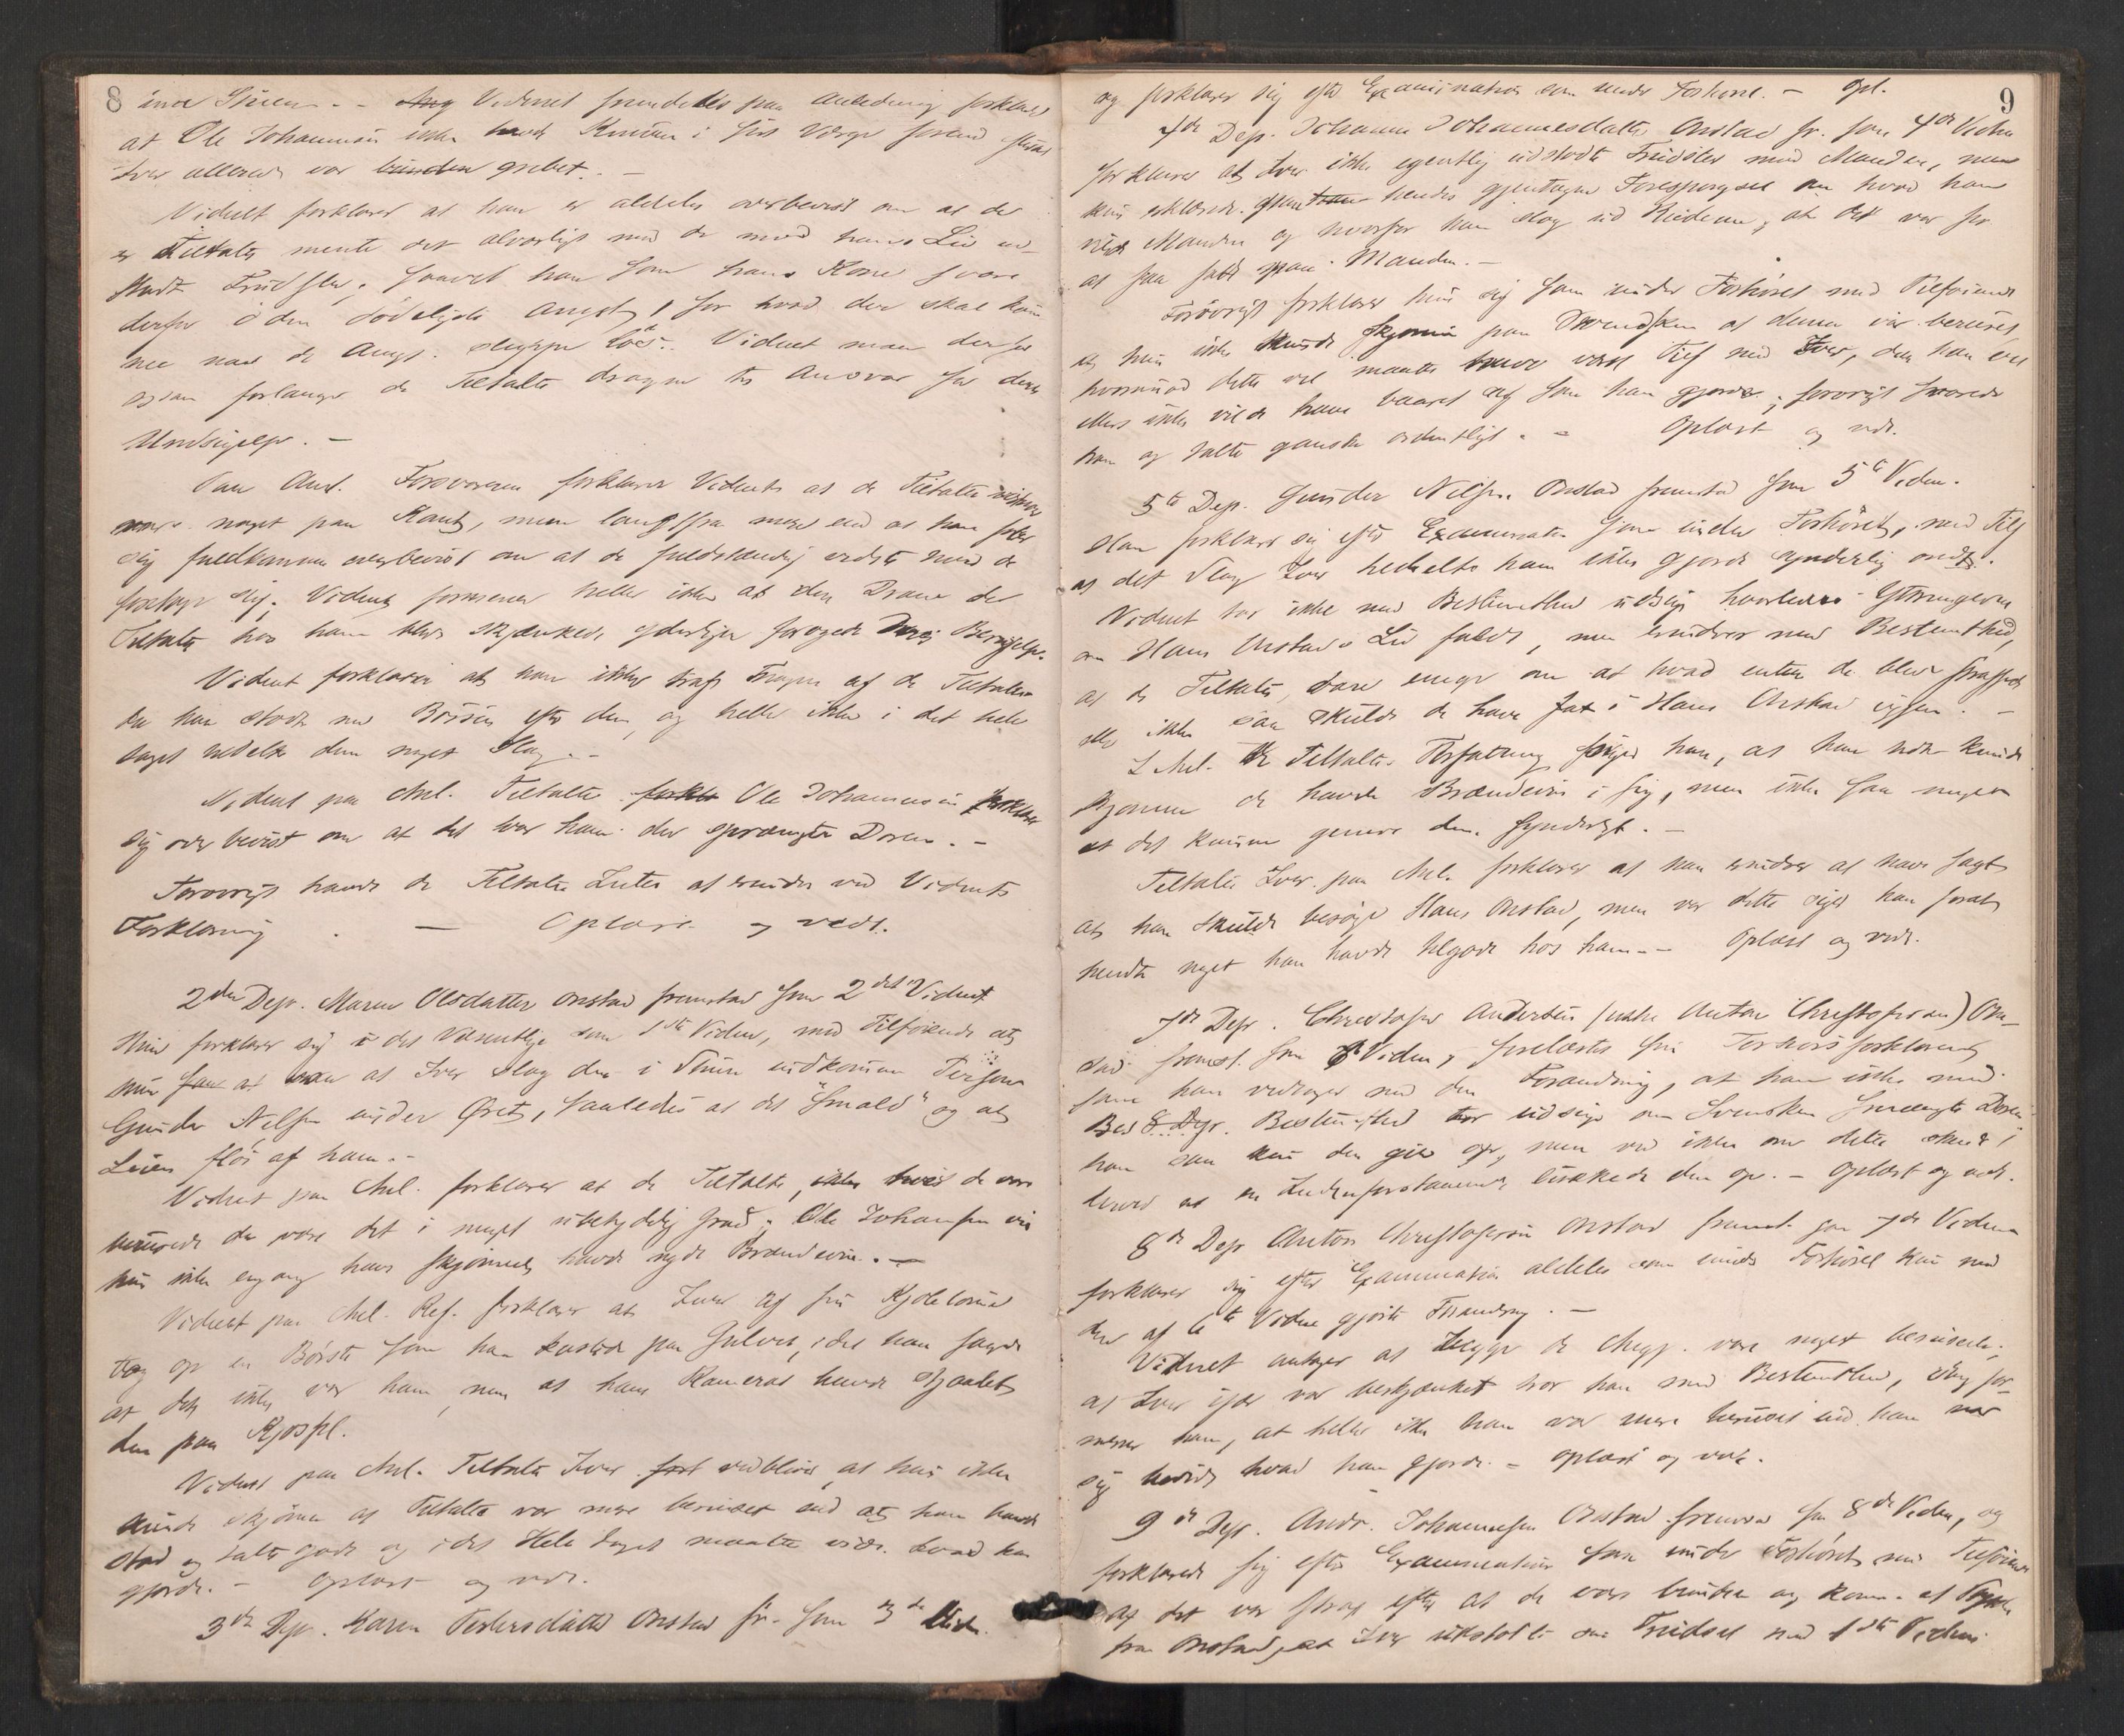 8
inde Stuen. - Vidnet fremdeles paa Anledning forklarer
at Ole Johannesen ikke havde Kniven i sit Værge forend
Iver allerede var bunden grebet. -
Vidnet forklarer at han er aldeles overbevist om at de
Tiltalte mente det alvorligt med de mod hans Liv ud-
stødte Trudsler, saavel han som hans Kone svæve
derfor i den dødeligste Angst, for hvad der skal kom
me naar de Angj. slippe løs. Vidnet maa derfor
ogsaa forlange de Tiltalte dragne til Ansvar for denne
Undsigelse. -
Paa Anl. Forsvareren forklarer Vidnet at de Tiltalte
vare noget paa Kant, men langtfra mere end at han føler
sig fuldkommen overbevist om at de fuldstændig vidste hvad de
foretoge sig. Vidnet formener heller ikke at den Dram de
Tiltalte hos ham blev skjænkede yderligere forøgede Beruselse.
Vidnet forklarer at han ikke traf Nogen af de Tiltalte
da han stødte med Bøssen efter dem, og heller ikke i det hele
taget tildelte dem noget Slag. -
Vidnet paa Anl. Tiltalte Ole Johannesen forklarer
sig overbevist om at det var ham der sprængte Døren. -
Forøvrigt havde de Tiltalte Intet at erindre ved Vidnets
Forklaring. - Oplæst og vedt.
2den Dep. Maren Olsdatter Onstad fremstod som 2det Vidne
Hun forklarer sig i det Væsentlige som 1ste Vidne, med Tilføiende at
hun saa at Iver slog den i Stuen indkomne Person
Gunder Nilsen under Øret, saaledes at det "smald" og at
Luen fløi af ham. -
Vidnet paa Anl. forklarer at de Tiltalte, hvis de vare
berusede da vare det i meget ubetydelig Grad; Ole Johansen
hun ikke engang havde nydt Brændeviin. -
Vidnet paa Anl. Ref. forklarer at Iver af sin Kjolelomme
tog op en Børste som han kastede paa Gulvet, idet han sagde
at det ikke var ham, men at hans Kamerat havde stjaalet
den paa
Vidnet paa Anl. Tiltalte Iver vedbliver, at hun ikke
kunde skjønne at Tiltalte var mere beruset end at han baade
stod og talte godt og i det Hele taget maatte vide hvad han
gjorde. - Oplæst og vedt.
3die Dep. Karen Pedersdatter Onstad fr. som 3die Vidne
9
og forklarer sig efter Examination som under Forhøret. - Opl.
4de Dep. Johanne Johannesdatter Onstad fr. som 4de Vidne
forklarer at Iver ikke egentlig udstødte Trudsler mod Manden, men
kun erklærede paa hendes gjentagne Forespørgsel om hvad han
vilde Manden og hvorfor han slog ud Ruderne, at det var for
at faa fatt paa Manden. -
Forøvrigt forklarer hun sig som under Forhøret med Tilføiende
at hun ikke kunde skjønne paa Svensken at denne var beruset,
hvorimod dette vel maatte have været Tilf. med Iver, da han vel
ellers ikke vilde have baaret sig som han gjorde; forøvrigt svarede
han og talte ganske ordentligt. - Oplæst og vedt.
5te Dep. Gunder Nilsen Onstad fremstod som 5te Vidne.
Han forklarer sig efter Examination som under Forhøret, med Tilf.
at det Slag Iver tildelte ham ikke gjorde synderlig ondt.
Vidnet tør ikke med Bestemthed udsige hvorledes Ytringerne
om Hans Onstads Liv faldt, men erindrer med Bestemthed,
at de Tiltalte vare enige om at hvad enten de bleve straffede
eller ikke saa skulde de have fat i Hans Onstad igjen. -
I Anl. de Tiltaltes Forfatning siger han, at han nok kunde
skjønne de havde Brændeviin i sig, men ikke saa meget
at det kunne genere dem synderligt. -
Tiltalte Iver paa Anl. forklarer at han erindrer at have sagt
at han skulde besøge Hans Onstad, men var dette siger han forat
hente noget han havde tilgode hos ham. - Oplæst og vedt.
7de Dep. Christofer Andersen (ikke Anton Christofersen) On-
stad fremst. som 6te Vidne, forelæstes sin Forhørsforklaring
som han vedtager med den Forandring, at han ikke med
Bestemthed tør udsige om Svensken sprængte Døren
han saa kun den gik op, men ved ikke om dette skede
derved at en Indenforstaaende lukkede den op. - Oplæst og vedt.
8de Dep Anton Christofersen Onstad fremst. som 7de Vidne
forklarer sig efter Examination aldeles som under Forhøret kun med
den af 6te Vidne gjorte Forandring. -
Vidnet antager at begge de Angj. vare noget berusede;
at Iver især var beskjænket tror han med Bestemthed, dog for-
mener han, at heller ikke han var mere beruset end han var
sig bevidst hvad han gjorde. - Oplæst og vedt.
9de Dep. Andr. Johannesen Onstad fremstod som 8de Vidne, og
forklarede sig efter Examination som under Forhøret med Tilføiende
at det var strax efter at de vare bundne og komne et Stykke
fra Onstad, at Iver udstødte sin Trudsel mod 1ste Vidnes